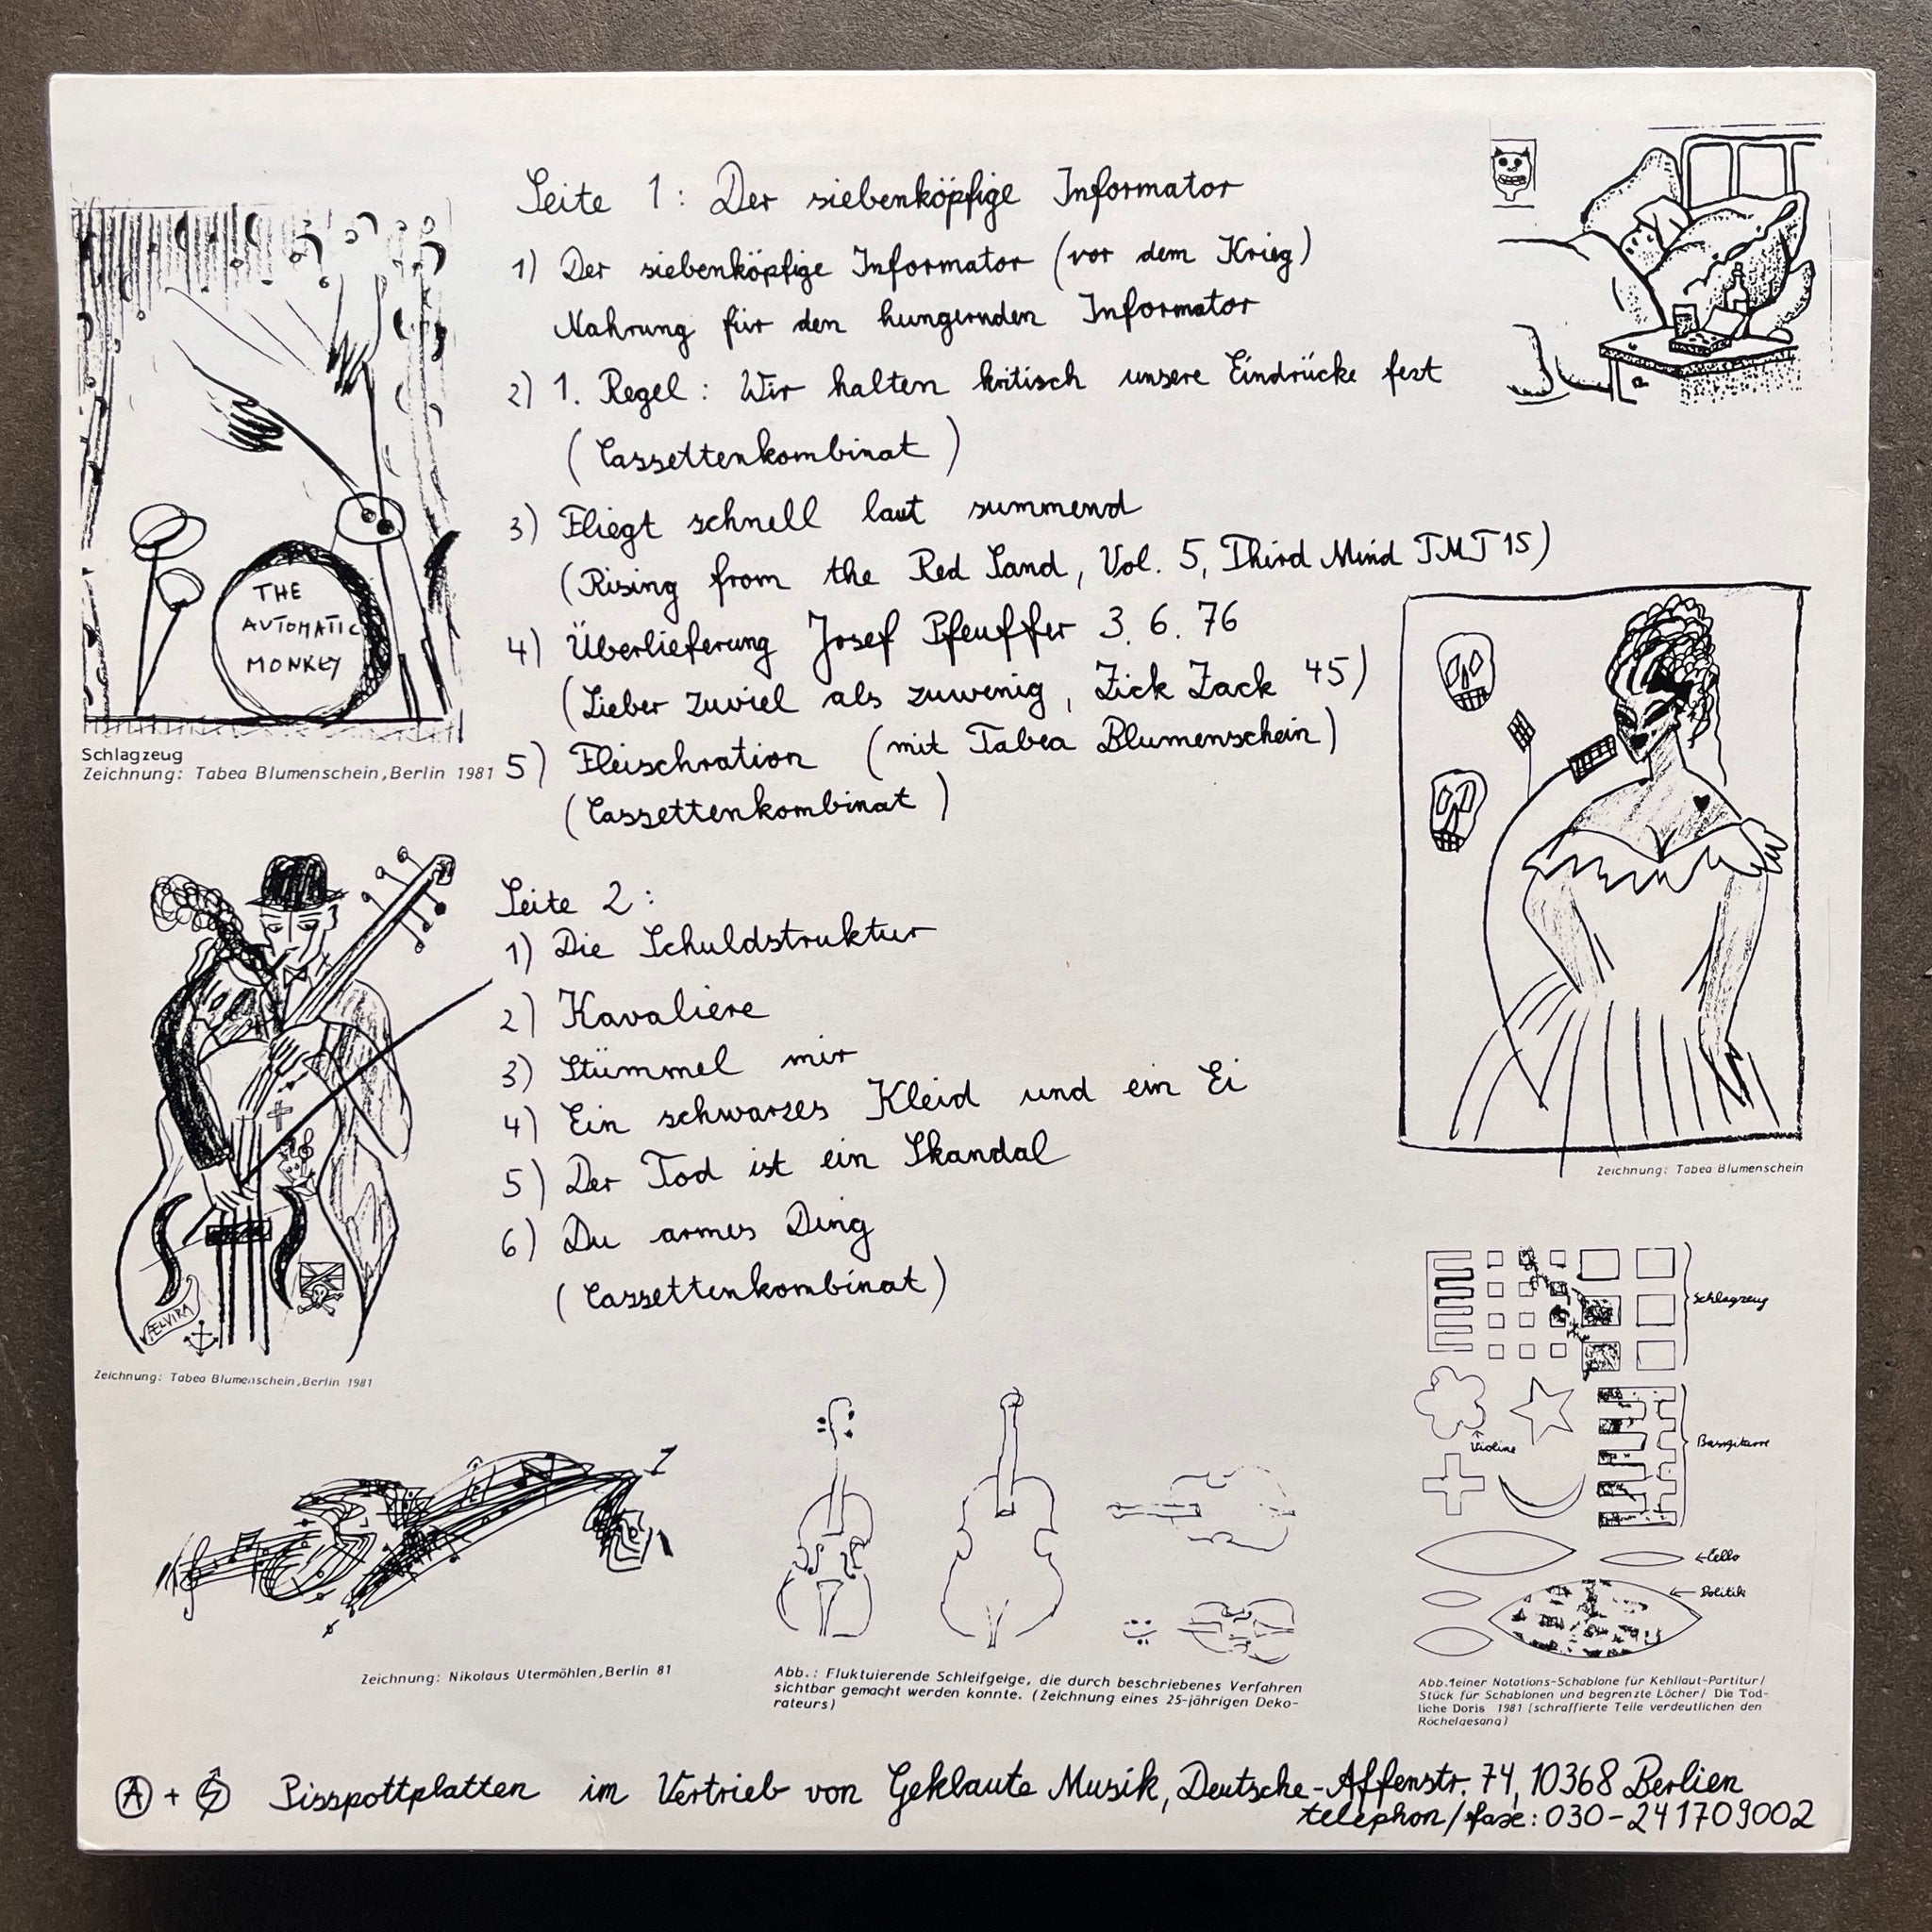 Seite 1: Der siebenköpfige Informator
1) Der siebenköpfige Informator (vor dem Krieg)
Nahrung für den hungernden Informator
2) 1. Regel: Wir halten kritisch unsere Eindrücke fest
(Cassettenkombinat)
3) Fliegt schnell laut summend
(Rising from the Red Sand, Vol. 5, Third Mind TMT 15)
4) Überlieferung Josef Pfeuffer 3.6.76
(Lieber zuviel als zuwenig, Zick Zack 45)
5) Fleischration (mit Tabea Blumenschein)
(Cassettenkombinat)
THE
AUTOMATIC
MONKEY
Schlagzeug
Zeichnung: Tabea Blumenschein, Berlin 1981
Seite 2:
1) Die Schuldstruktur
2) Kavaliere
3) Stümmel mir
4) Ein schwarzes Kleid und ein Ei
5) Der Tod ist ein Skandal
6) Du armes Ding
(Cassettenkombinat)
ÆLVIRA
Zeichnung: Tabea Blumenschein, Berlin 1981
Zeichnung: Tabea Blumenschein
Schlagzeug
Violine
Bassgitarre
←Cello
← Politik
Zeichnung: Nikolaus Utermöhlen, Berlin 81
Abb.: Fluktuierende Schleifgeige, die durch beschriebenes Verfahren
sichtbar gemacht werden konnte. (Zeichnung eines 25-jährigen Deko-
rateurs)
Abb.1einer Notations-Schablone für Kehllaut-Partitur/
Stück für Schablonen und begrenzte Löcher/ Die Töd-
liche Doris 1981 (schraffierte Teile verdeutlichen den
Röchelgesang)
A + S Pisspottplatten im Vertrieb von Geklaute Musik, Deutsche-Affenstr. 74, 10368 Berlien
telephon/faxe: 030-241709002